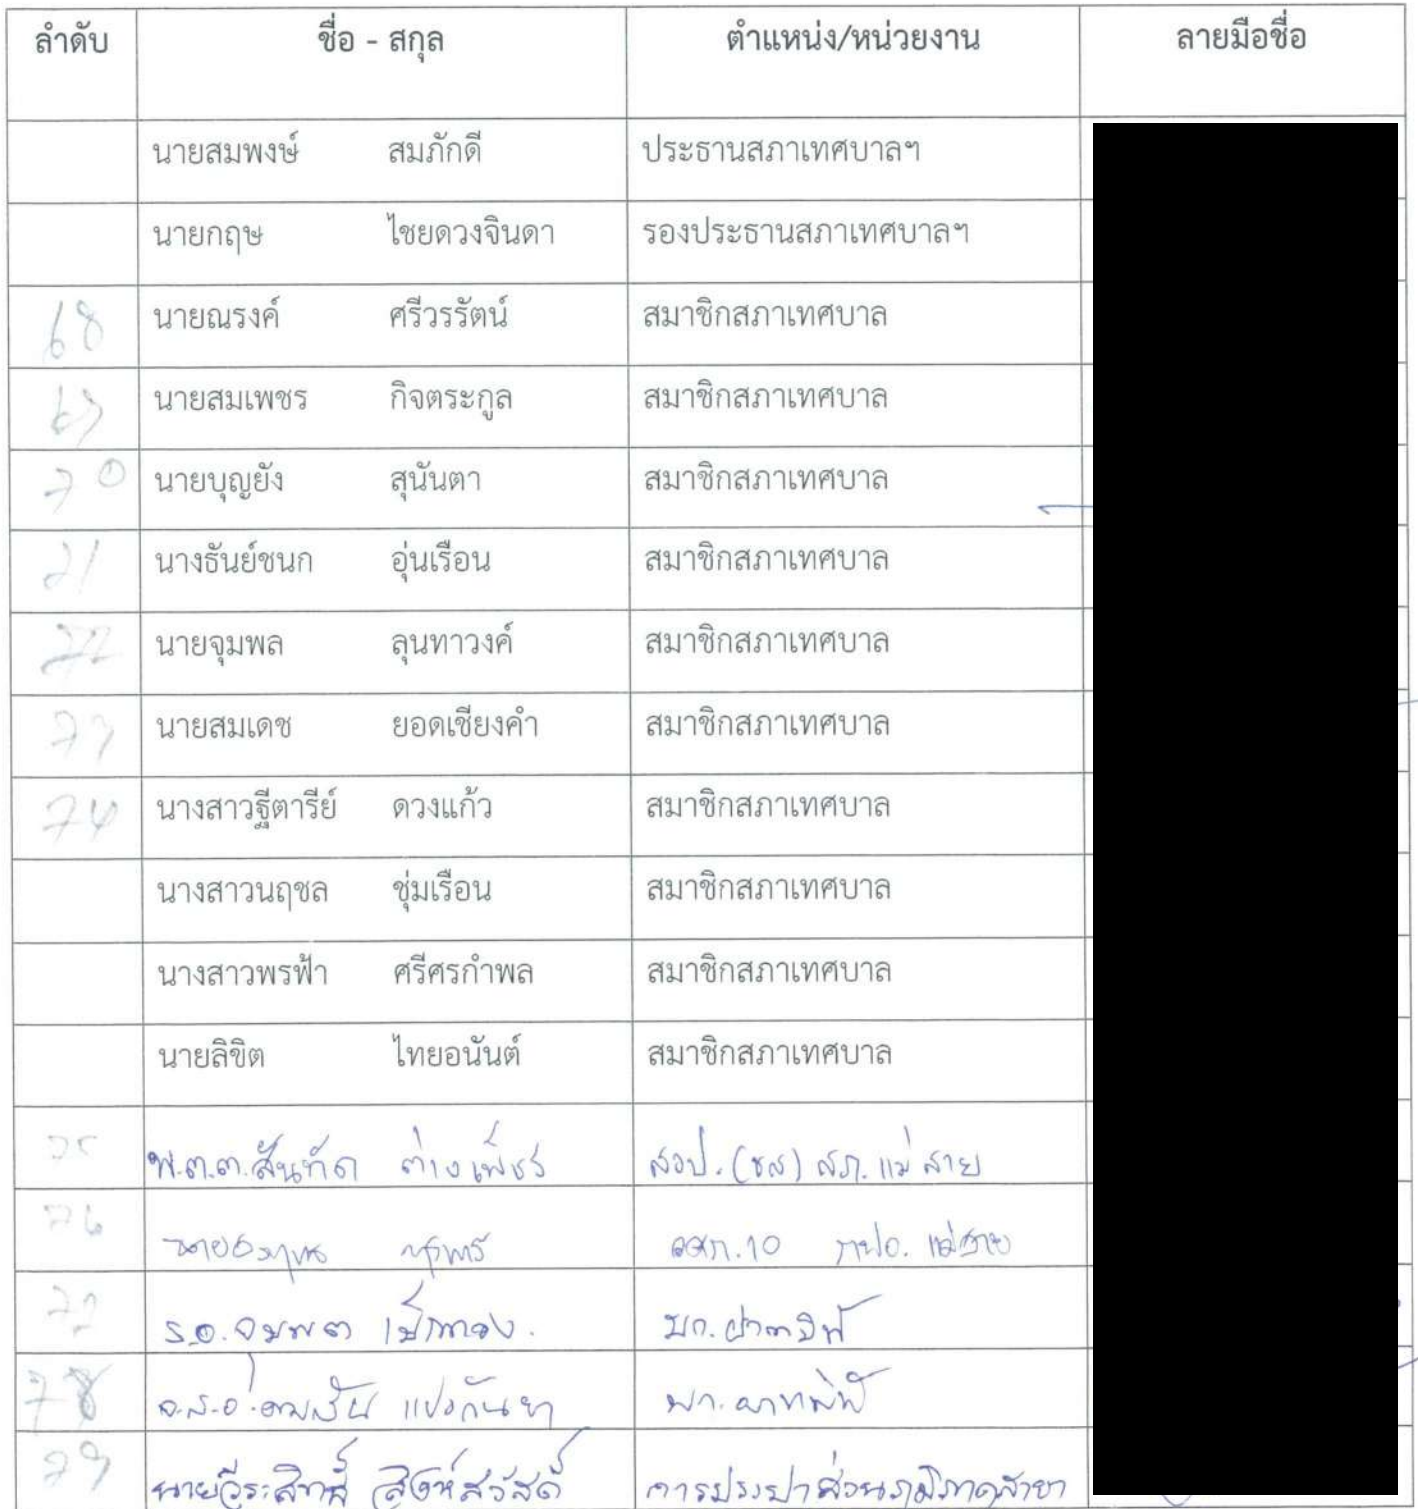 ลำดับ ชื่อ - สกุล ตำแหน่ง/หน่วยงาน ลายมือชื่อ
นายสมพงษ์ สมภักดี ประธานสภาเทศบาลฯ
นายกฤษ ไชยดวงจินดา รองประธานสภาเทศบาลฯ
68 นายณรงค์ ศรีวรรัตน์ สมาชิกสภาเทศบาล
69 นายสมเพชร กิจตระกูล สมาชิกสภาเทศบาล
70 นายบุญยัง สุนันตา สมาชิกสภาเทศบาล
71 นางธันย์ชนก อุ่นเรือน สมาชิกสภาเทศบาล
72 นายจุมพล ลุนทาวงค์ สมาชิกสภาเทศบาล
73 นายสมเดช ยอดเชียงคำ สมาชิกสภาเทศบาล
74 นางสาวฐีตารีย์ ดวงแก้ว สมาชิกสภาเทศบาล
นางสาวนฤชล ชุ่มเรือน สมาชิกสภาเทศบาล
นางสาวพรฟ้า ศรีศรกำพล สมาชิกสภาเทศบาล
นายลิขิต ไทยอนันต์ สมาชิกสภาเทศบาล
75 พ.ต.ต.สันทัด ต่างเพ็ชร์ สวป.(ชส) สภ.แม่สาย
76 แม่สาย
77 ร.อ.
78 จ.ส.อ.
79 นายวีระสิทธิ์ สิงห์สวัสดิ์ การประปาส่วนภูมิภาคสาขา